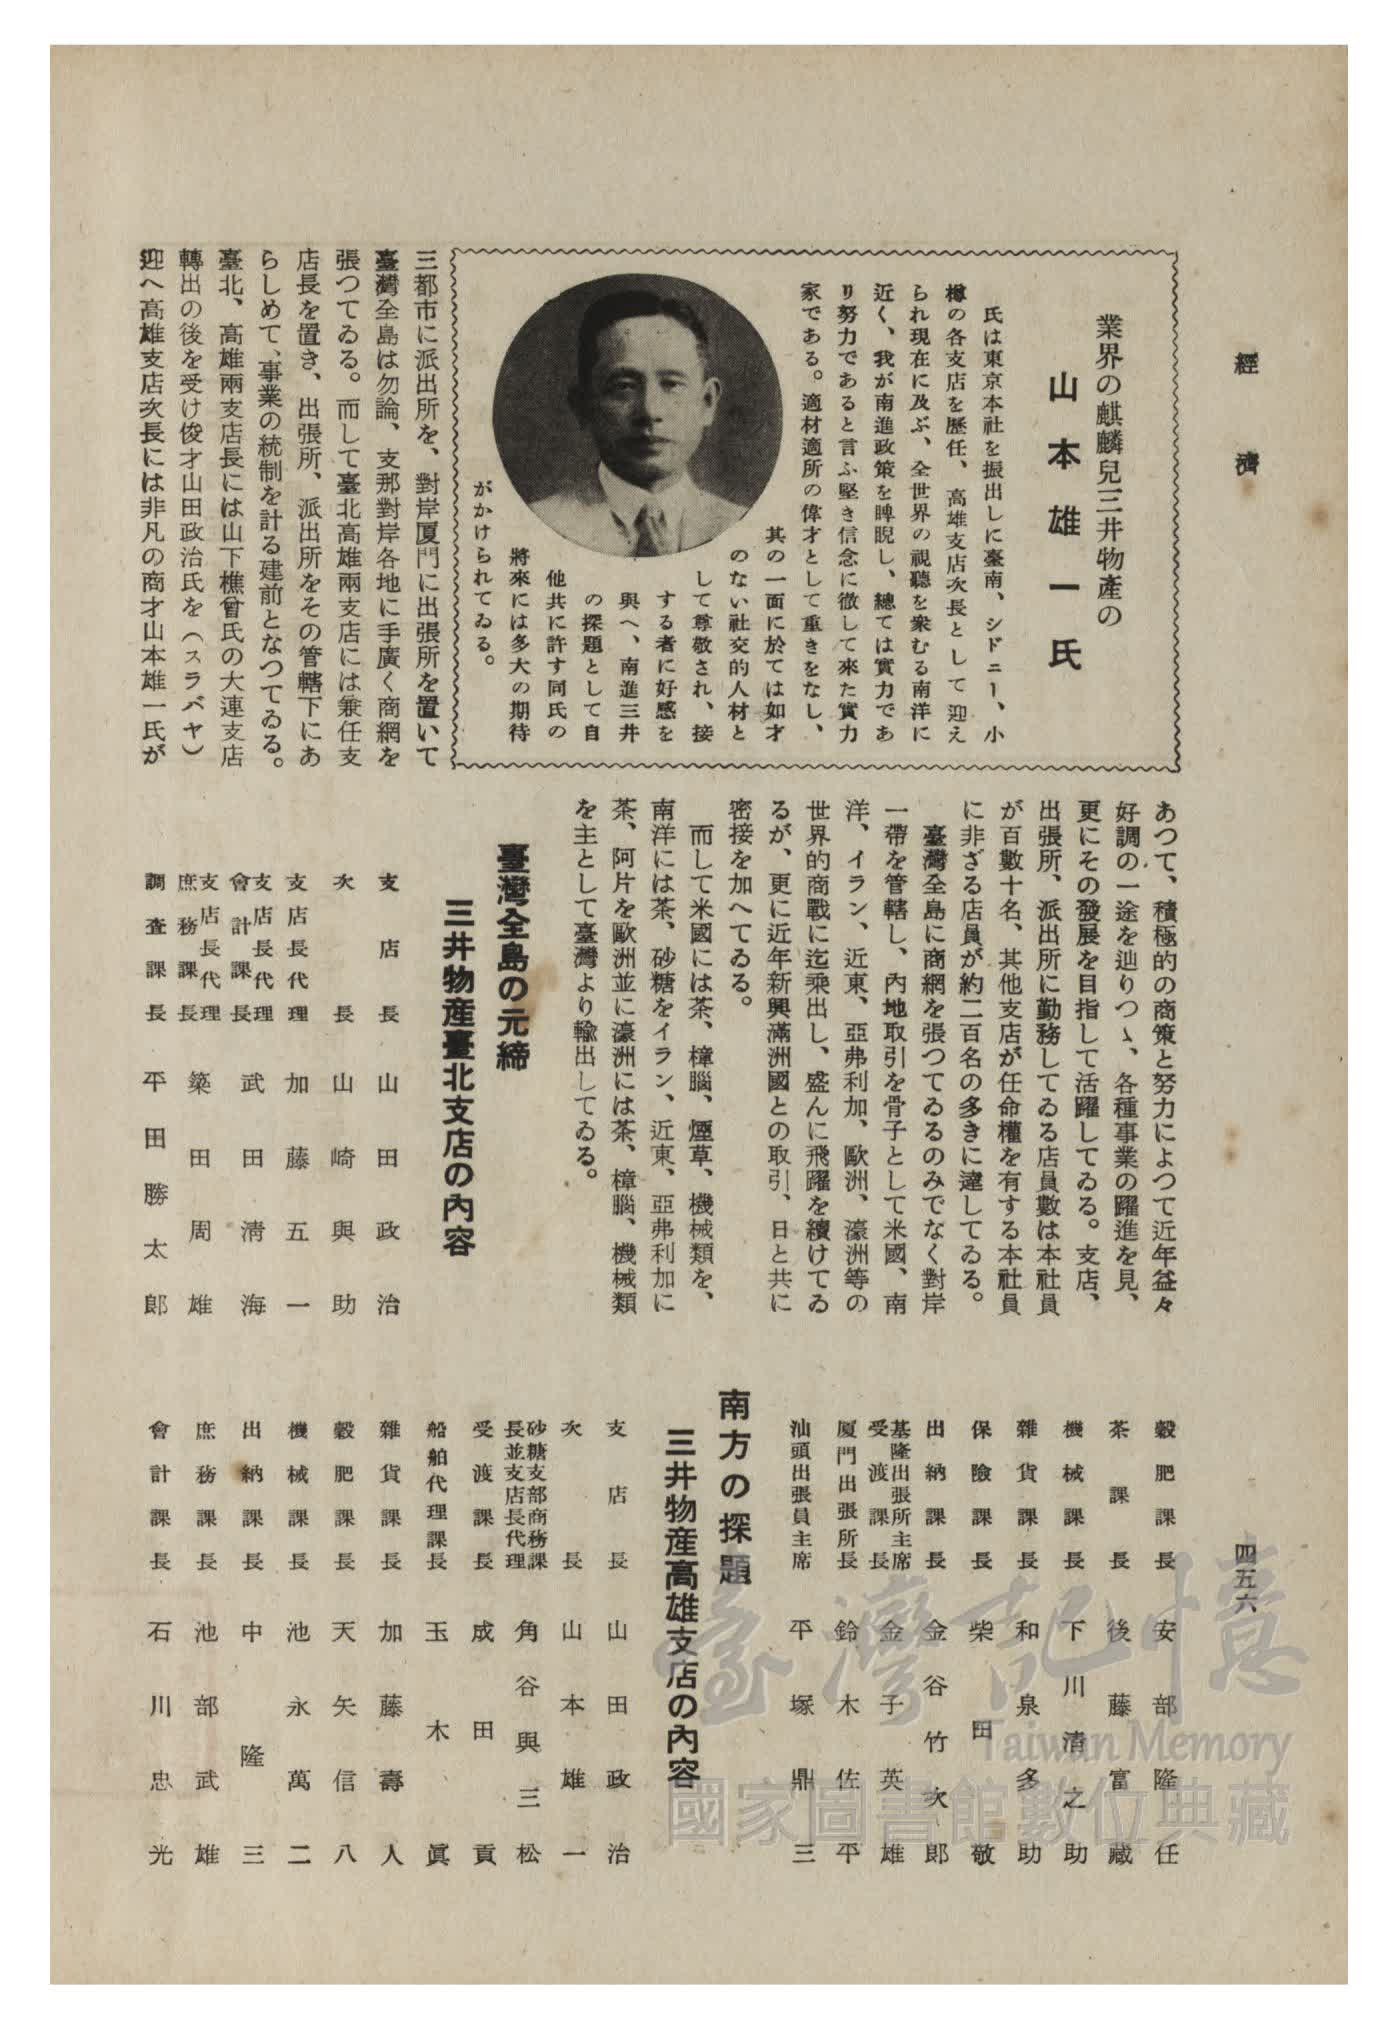 經濟
四五六
業界の麒麟兒三井物產の
山本雄一氏
氏は東京本社を振出しに臺南、シドニー、小
樽の各支店を歷任、高雄支店次長として迎え
られ現在に及ぶ、全世界の視聽を衆むる南洋に
近く、我が南進政策を睥睨し、總ては實力であ
り努力であると言ふ堅き信念に徹して來た實力
家である。適材適所の偉才として重きをなし、
其の一面に於ては如才
のない社交的人材と
して尊敬され、接
する者に好感を
與へ、南進三井
の探題として自
他共に許す同氏の
將來には多大の期待
がかけられてゐる。
三都市に派出所を、對岸厦門に出張所を置いて
臺灣全島は勿論、支那對岸各地に手廣く商網を
張つてゐる。而して臺北高雄兩支店には兼任支
店長を置き、出張所、派出所をその管轄下にあ
らしめて、事業の統制を計る建前となつてゐる。
臺北、高雄兩支店長には山下樵曾氏の大連支店
轉出の後を受け俊才山田政治氏を（スラバヤ）
迎へ高雄支店次長には非凡の商才山本雄一氏が
あつて、積極的の商策と努力によつて近年益々
好調の一途を辿りつゝ、各種事業の躍進を見、
更にその發展を目指して活躍してゐる。支店、
出張所、派出所に勤務してゐる店員數は本社員
が百數十名、其他支店が任命權を有する本社員
に非ざる店員が約二百名の多きに達してゐる。
臺灣全島に商網を張つてゐるのみでなく對岸
一帶を管轄し、內地取引を骨子として米國、南
洋、イラン、近東、亞弗利加、歐洲、濠洲等の
世界的商戰に迄乘出し、盛んに飛躍を續けてゐ
るが、更に近年新興滿洲國との取引、日と共に
密接を加へてゐる。
而して米國には茶、樟腦、煙草、機械類を、
南洋には茶、砂糖をイラン、近東、亞弗利加に
茶、阿片を歐洲並に濠洲には茶、樟腦、機械類
を主として臺灣より輸出してゐる。
臺灣全島の元締
三井物產臺北支店の內容
支店長 山田政治
次長 山崎與助
支店長代理 加藤五一
支店長代理會計課長 武田淸海
支店長代理庶務課長 築田周雄
調查課長 平田勝太郎
穀肥課長 安部隆任
茶課長 後藤富藏
機械課長 下川淸之助
雜貨課長 和泉多助
保險課長 柴田敬
出納課長 金谷竹次郎
基隆出張所主席受渡課長 金子英雄
厦門出張所長 鈴木佐平
汕頭出張員主席 平塚鼎三
南方の探題
三井物產高雄支店の內容
支店長 山田政治
次長 山本雄一
砂糖支部商務課長並支店長代理 角谷與三松
受渡課長 成田貢
船舶代理課長 玉木眞
雜貨課長 加藤壽人
穀肥課長 天矢信八
機械課長 池永萬二
出納課長 中隆三
庶務課長 池部武雄
會計課長 石川忠光
臺灣記憶
Taiwan Memory
國家圖書館數位典藏